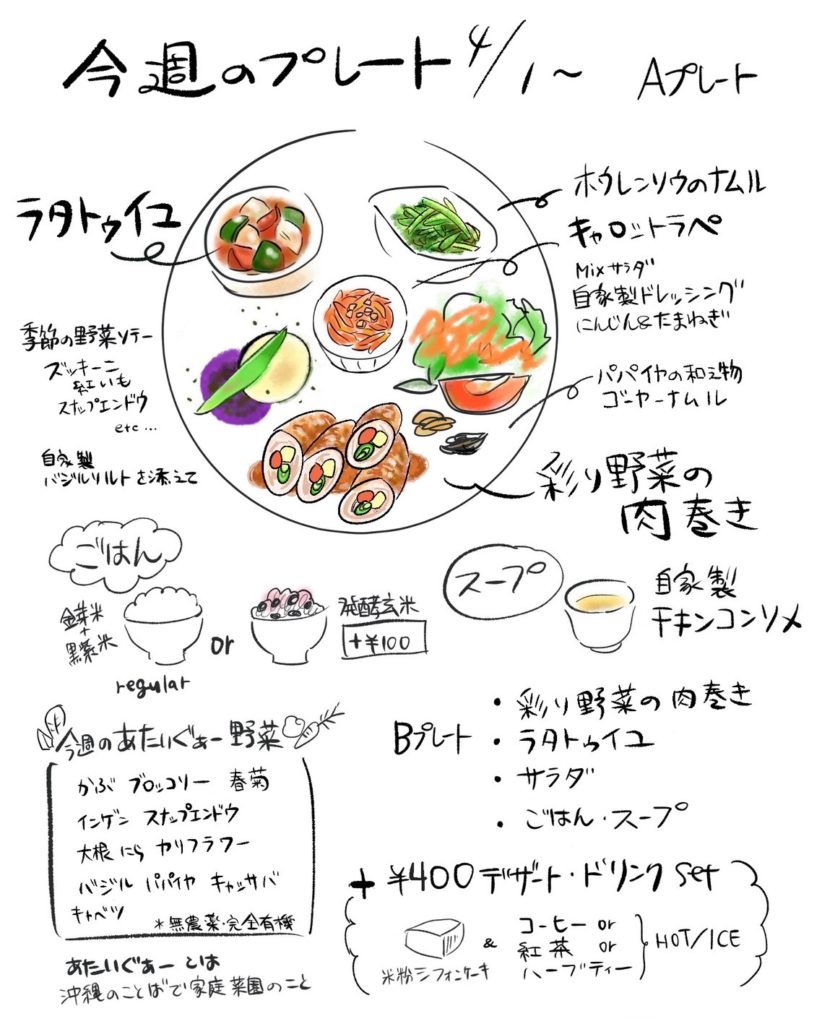 今週のプレート 4/1〜 Aプレート
ラタトゥイユ
ホウレンソウのナムル
キャロットラペ
Mixサラダ
自家製ドレッシング
にんじん&たまねぎ
季節の野菜ソテー
ズッキーニ
紅いも
スナップエンドウ
etc...
自家製
バジルソルトを添えて
パパイヤの和え物
ゴーヤーナムル
彩り野菜の
肉巻き
ごはん
金芽米
+
黒紫米
regular
or
発酵玄米
+¥100
スープ
自家製
チキンコンソメ
今週のあたいぐぁー野菜
かぶ ブロッコリー 春菊
インゲン スナップエンドウ
大根 にら カリフラワー
バジル パパイヤ キャッサバ
キャベツ
*無農薬・完全有機
あたいぐぁーとは
沖縄のことばで家庭菜園のこと
Bプレート
・彩り野菜の肉巻き
・ラタトゥイユ
・サラダ
・ごはん・スープ
+ ¥400 デザート・ドリンク set
米粉シフォンケーキ
&
コーヒー or
紅茶 or
ハーブティー
HOT/ICE